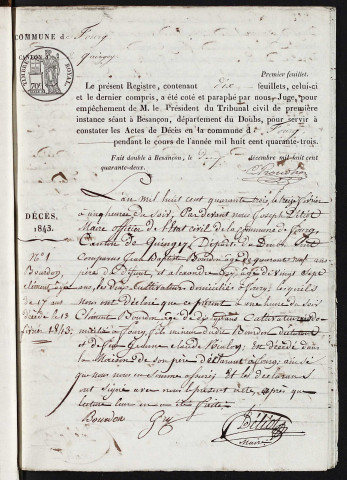 COMMUNE de Fourg
CANTON de Quingey
TIMBRE ROYAL
Premier feuillet.
Le présent Registre, contenant dix feuillets, celui-ci
et le dernier compris, a été coté et paraphé par nous, Juge, pour
empêchement de M. le Président du Tribunal civil de première
instance séant à Besançon, département du Doubs, pour servir à
constater les Actes de Décès en la commune de Fourg
pendant le cours de l'année mil huit cent quarante-trois.
Fait double à Besançon, le décembre mil huit cent
quarante-deux.
DÉCÈS.
1843.
N° 1
Bourdon
Clément âgé
de 17 ans
décédé le 13
février 1843
L'an mil huit cent quarante trois, le treize février
à une heure du Soir, Par devant nous Joseph Détiot
Maire officier de l'état civil de la commune de Fourg
Canton de Quingey, Départ. du Doubs, sont
Comparus Jean Baptiste Bourdon âgé de quarante neuf ans
père du défunt, et alexandre Guy âgé de vingt sept
ans, les deux Cultivateurs domiciliés à Fourg, lesquels
nous ont déclaré que ce présent à une heure du Soir
Clément Bourdon âgé de dix sept ans Cultivateur do-
micilié à Fourg, fils mineur dudit Bourdon déclarant
et de feu Jeanne Claude, est décédé dans
la Maison de son père déclarant à Fourg, ainsi
que nous nous en sommes assurés. Et les déclarans
ont signé avec nous le présent acte, après que
lecture leur en a été faite.
Bourdon Guy Détiot
Maire